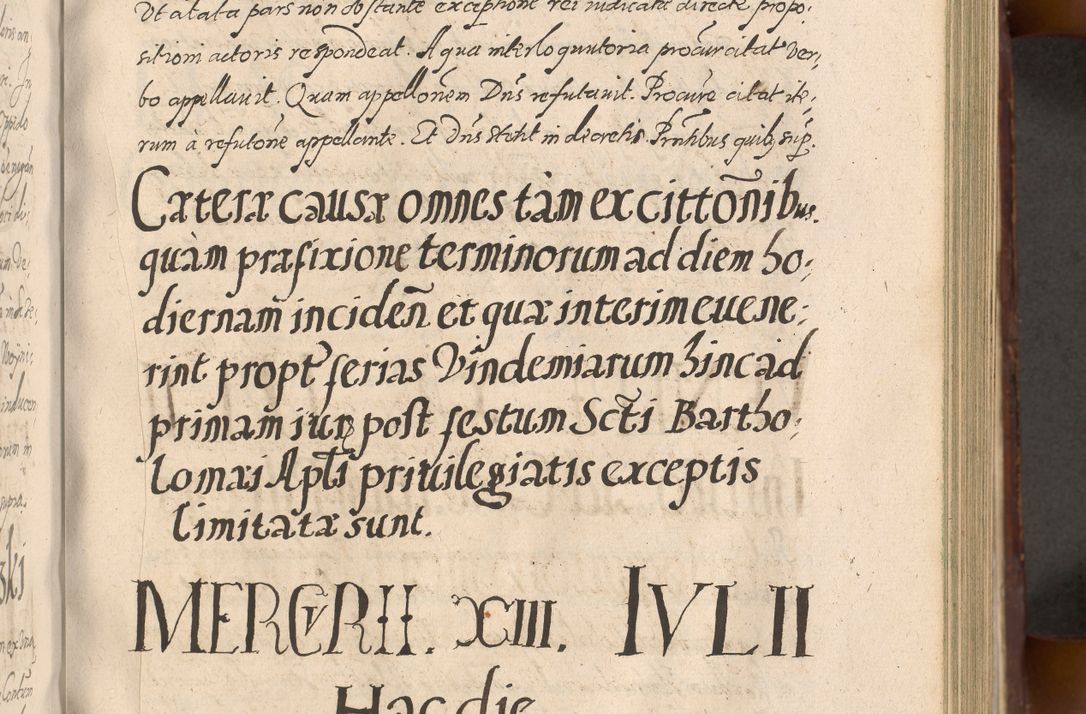 Ut at alata pars non obstante exceptione rei iudicatæ directe propo-
sitioni actoris respondeat. A qua interloquutoria procur citat ver,
bo appellavit. Quam appellonem Dns refutavit. Procura citat ite,
rum à refutone appellante. Et Dns stetit in decretis. Prntibus quib9 sup.
Cæteræ causæ omnes tàm ex cittõnibus.
quàm præfixione terminorum ad diem ho-
diernam incideñ et quæ interim euene-
rint propt ferias Vindemiarum hinc ad
primam iur post festum Scti Bartho-
lomæi Apli priuilegiatis exceptis
limitatæ sunt.
MERCVRII. XIII. IVLII
Hac die